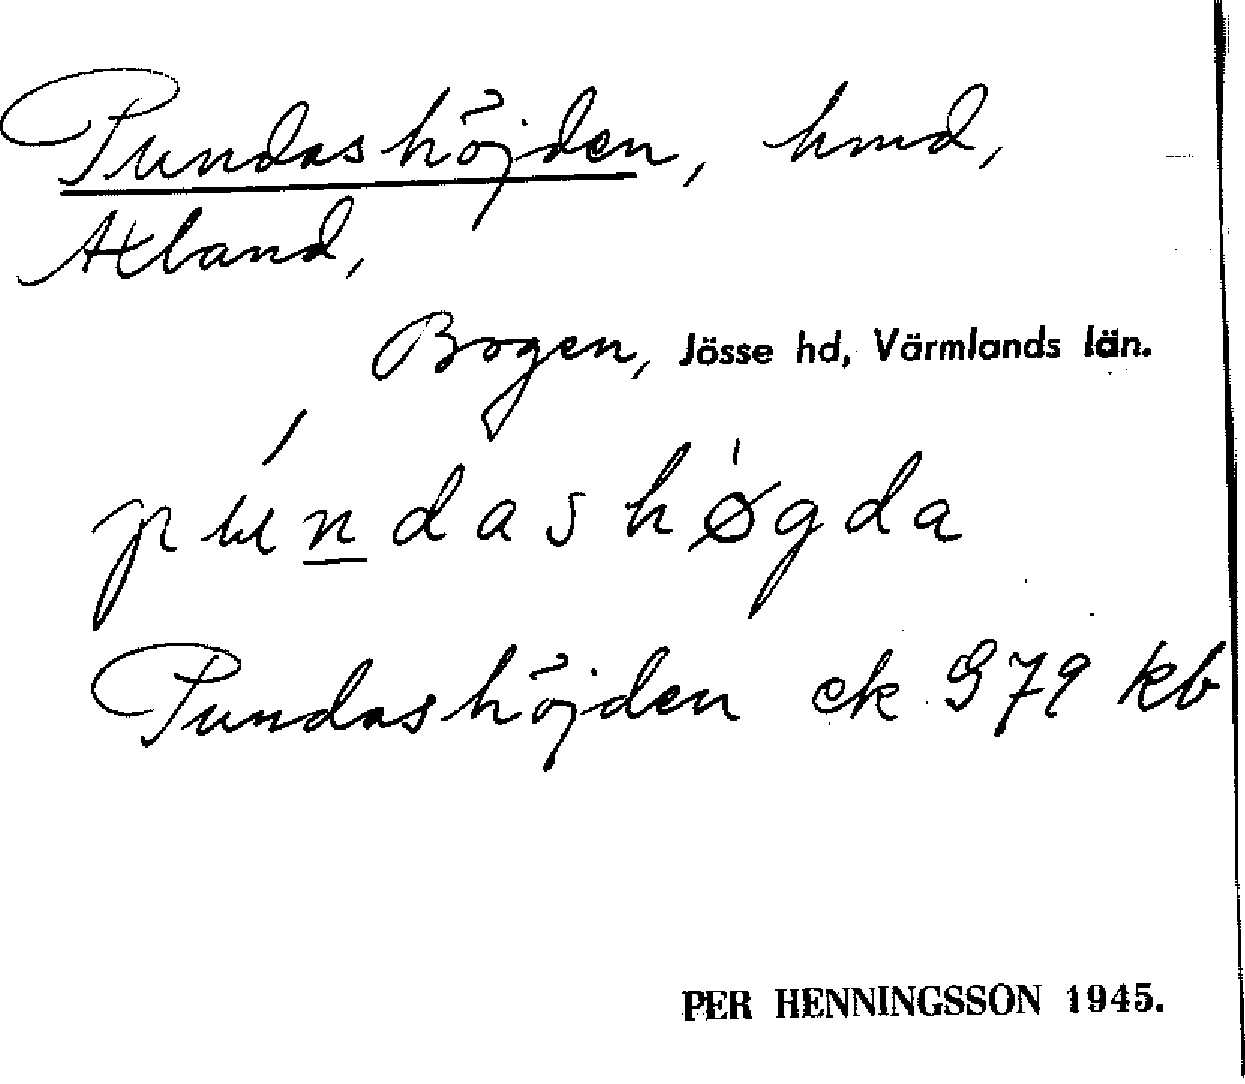 Pundashöjden, hmd,
Axland,
Bogen, Jösse hd, Värmlands län.
púndashø̍gda
Pundashöjden ek 979 kb
PER HENNINGSSON 1945.